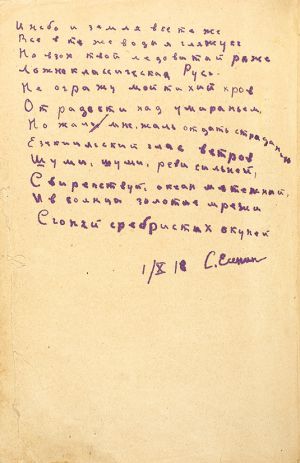 И небо и земля все те же
Все в те же воды я гляжусь
Но вздох твой ледовитый реже
Ложноклассическая Русь.
Не огражу мой тихий кров
От радости над умираньем,
Но жаль мне, жаль отдать страданью
Езекиильский глас ветров
Шуми, шуми, реви сильней,
Свирепствуй, океан мятежный,
И в солнца золотые мрежи
Сгоняй сребристых окуней
1/X 18 С. Есенин